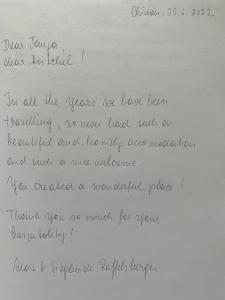 25.5.2022
Dear Tanja,
dear !
In all the years we have been
travelling, we never had such a
beautiful and homely accomodation
and such a nice welcome.
You created a wonderful place!
Thank you so much for your
hospitality!